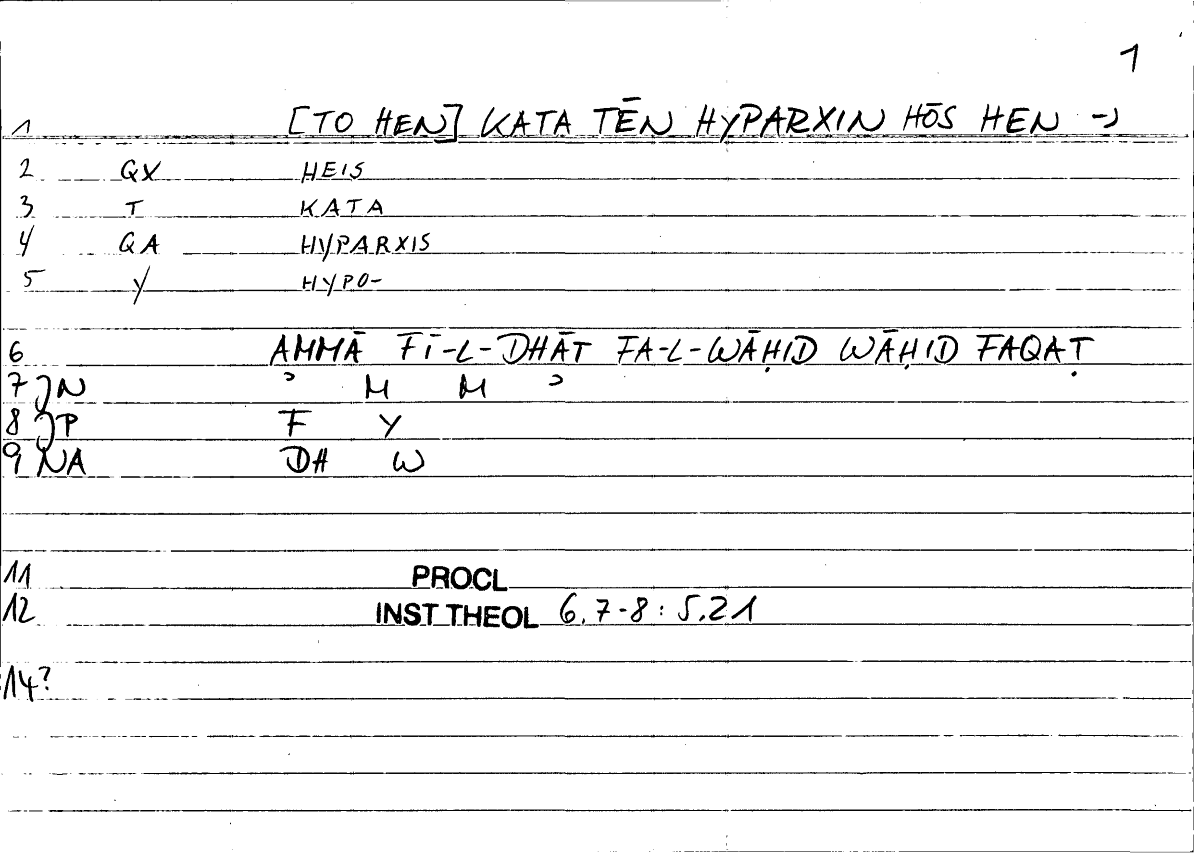 1
1 [TO HEN] KATA TĒN HYPARXIN HŌS HEN →
2 QX HEIS
3 T KATA
4 QA HYPARXIS
5 Y HYPO-
6 AMMĀ FĪ-L-DHĀT FA-L-WĀḤID WĀḤID FAQAṬ
7 JN ʾ M M ʾ
8 JP F Y
9 NA DH W
11 PROCL
12 INST THEOL 6.7-8:5.21
14?